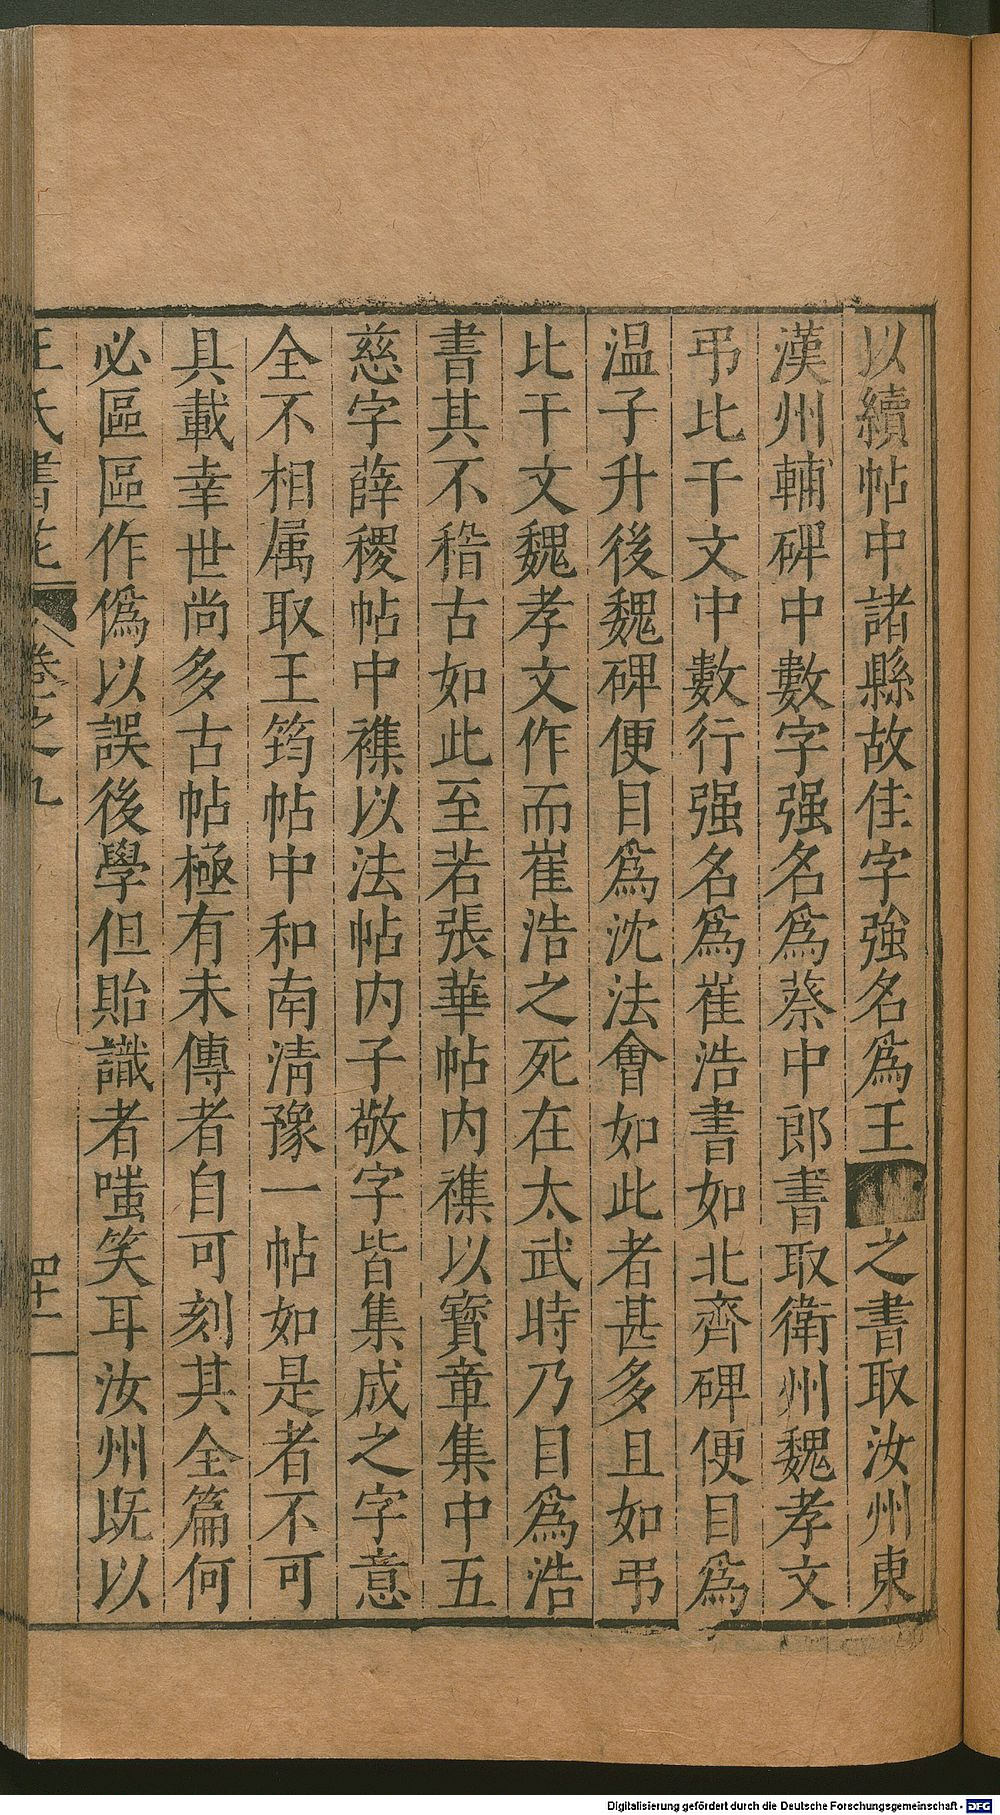 以續帖中諸縣故佳字強名爲王之書取汝州東
漢州輔碑中數字强名爲蔡中郎書取衛州魏孝文
弔比干文中數行强名爲崔浩書如北齊碑便目爲
温子升後魏碑便目爲沈法會如此者甚多且如弔
比干文魏孝文作而崔浩之死在太武時乃目爲浩
書其不稽古如此至若張華帖内襍以寶章集中五
慈字薛稷帖中襍以法帖内子敬字皆集成之字意
全不相属取王筠帖中和南清豫一帖如是者不可
具載幸世尚多古帖極有未傳者自可刻其全篇何
必區區作僞以誤後學但貽識者嗤笑耳汝州既以
王氏書苑 卷之九 四十二
Digitalisierung gefördert durch die Deutsche Forschungsgemeinschaft - DFG